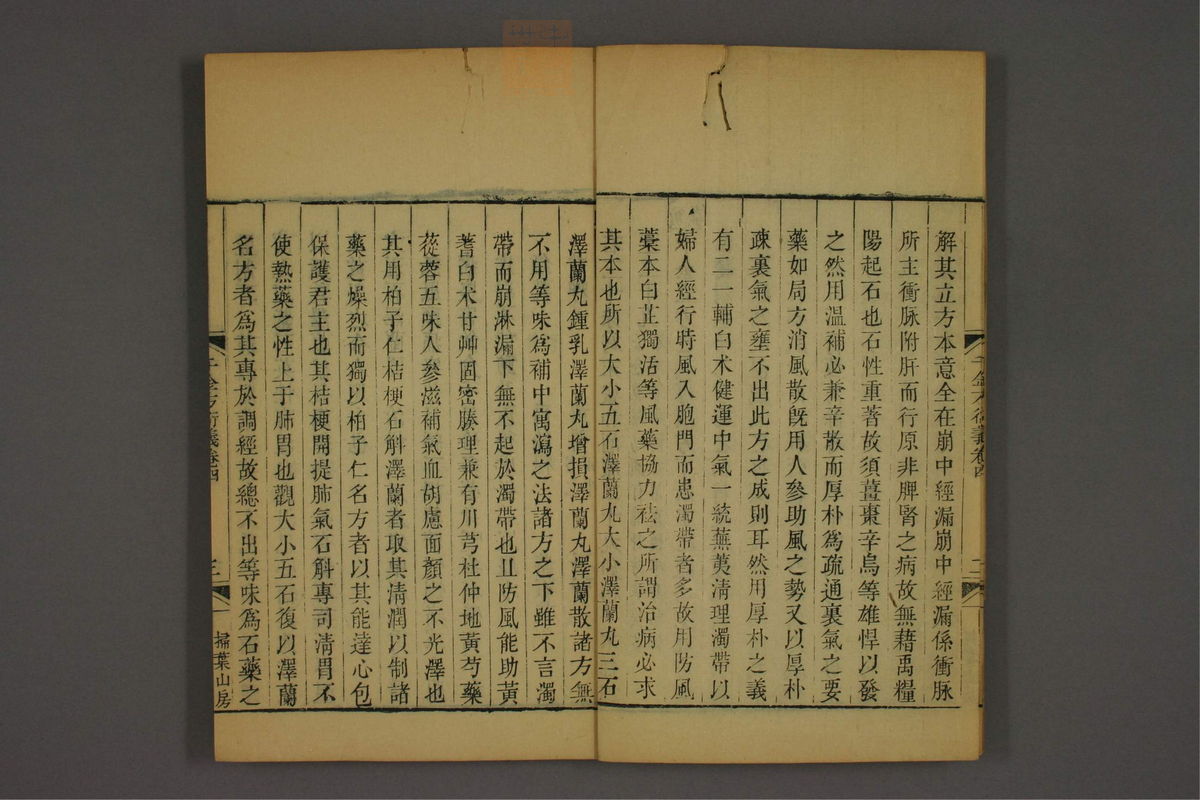 解其立方本意全在崩中經漏崩中經漏係衝脉
所主衝脉附肝而行原非脾腎之病故無藉禹糧
陽起石也石性重著故須薑棗辛烏等雄悍以發
之然用溫補必兼辛散而厚朴爲疏通裏氣之要
藥如局方消風散旣用人參助風之勢又以厚朴
疎裏氣之壅不出此方之成則耳然用厚朴之義
有二一輔白术健運中氣一統蕪荑淸理濁帶以
婦人經行時風入胞門而患濁帶者多故用防風
藁本白芷獨活等風藥協力祛之所謂治病必求
其本也所以大小五石澤蘭丸大小澤蘭丸三石
澤蘭丸鍾乳澤蘭丸增損澤蘭丸澤蘭散諸方無
不用等味爲補中寓瀉之法諸方之下雖不言濁
帶而崩淋漏下無不起於濁帶也且防風能助黃
蓍白术甘艸固密腠理兼有川芎杜仲地黃芍藥
蓯蓉五味人參滋補氣血胡慮面顏之不光澤也
其用柏子仁桔梗石斛澤蘭者取其淸潤以制諸
藥之燥烈而獨以柏子仁名方者以其能達心包
保護君主也其桔梗開提肺氣石斛專司淸胃不
使熱藥之性上于肺胃也觀大小五石復以澤蘭
名方者爲其專於調經故總不出等味爲石藥之
千金方衍義卷四
三
掃葉山房